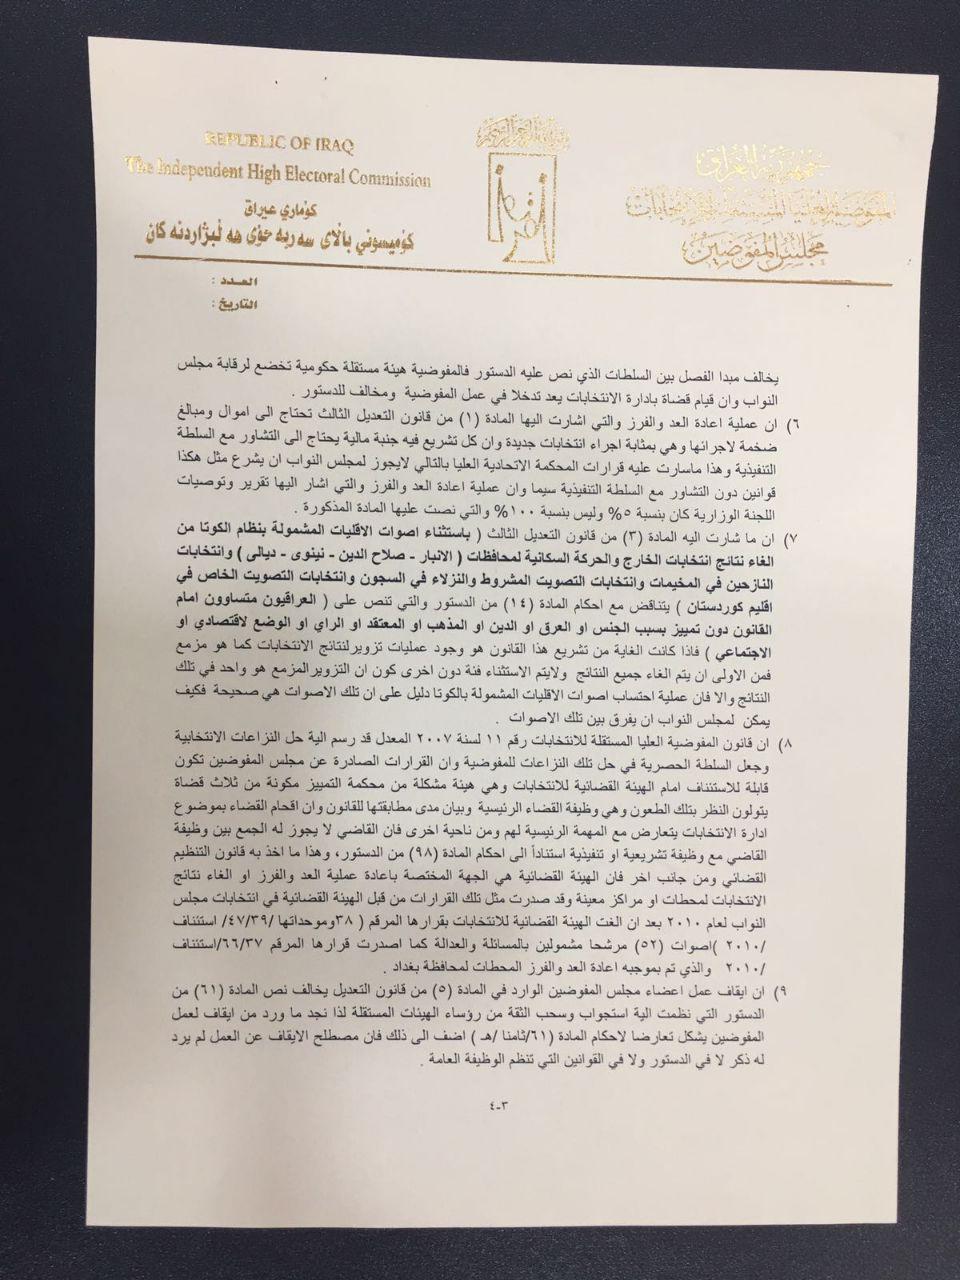 REPUBLIC OF IRAQ
The Independent High Electoral Commission
كۆماري عيراق
كۆميسوني بالاى سه ربه خۆى هه لبژاردنه كان
جمهورية العراق
المفوضية العليا المستقلة للانتخابات
مجلس المفوضين
العدد :
التاريخ :
يخالف مبدا الفصل بين السلطات الذي نص عليه الدستور فالمفوضية هيئة مستقلة حكومية تخضع لرقابة مجلس
النواب وان قيام قضاة بادارة الانتخابات يعد تدخلا في عمل المفوضية ومخالف للدستور .
٦) ان عملية اعادة العد والفرز والتي اشارت اليها المادة (١) من قانون التعديل الثالث تحتاج الى اموال ومبالغ
ضخمة لاجرائها وهي بمثابة اجراء انتخابات جديدة وان كل تشريع فيه جنبة مالية يحتاج الى التشاور مع السلطة
التنفيذية وهذا ماسارت عليه قرارات المحكمة الاتحادية العليا بالتالي لايجوز لمجلس النواب ان يشرع مثل هكذا
قوانين دون التشاور مع السلطة التنفيذية سيما وان عملية اعادة العد والفرز والتي اشار اليها تقرير وتوصيات
اللجنة الوزارية كان بنسبة ٥% وليس بنسبة ١٠٠% والتي نصت عليها المادة المذكورة .
٧) ان ما شارت اليه المادة (٣) من قانون التعديل الثالث ( باستثناء اصوات الاقليات المشمولة بنظام الكوتا من
الغاء نتائج انتخابات الخارج والحركة السكانية لمحافظات ( الانبار - صلاح الدين - نينوى - ديالى ) وانتخابات
النازحين في المخيمات وانتخابات التصويت المشروط والنزلاء في السجون وانتخابات التصويت الخاص في
اقليم كوردستان ) يتناقض مع احكام المادة (١٤) من الدستور والتي تنص على ( العراقيون متساوون امام
القانون دون تمييز بسبب الجنس او العرق او الدين او المذهب او المعتقد او الراي او الوضع لاقتصادي او
الاجتماعي ) فاذا كانت الغاية من تشريع هذا القانون هو وجود عمليات تزويرلنتائج الانتخابات كما هو مزمع
فمن الاولى ان يتم الغاء جميع النتائج ولايتم الاستثناء فئة دون اخرى كون ان التزويرالمزمع هو واحد في تلك
النتائج والا فان عملية احتساب اصوات الاقليات المشمولة بالكوتا دليل على ان تلك الاصوات هي صحيحة فكيف
يمكن لمجلس النواب ان يفرق بين تلك الاصوات .
٨) ان قانون المفوضية العليا المستقلة للانتخابات رقم ١١ لسنة ٢٠٠٧ المعدل قد رسم الية حل النزاعات الانتخابية
وجعل السلطة الحصرية في حل تلك النزاعات للمفوضية وان القرارات الصادرة عن مجلس المفوضين تكون
قابلة للاستئناف امام الهيئة القضائية للانتخابات وهي هيئة مشكلة من محكمة التمييز مكونة من ثلاث قضاة
يتولون النظر بتلك الطعون وهي وظيفة القضاء الرئيسية وبيان مدى مطابقتها للقانون وان اقحام القضاء بموضوع
ادارة الانتخابات يتعارض مع المهمة الرئيسية لهم ومن ناحية اخرى فان القاضي لا يجوز له الجمع بين وظيفة
القاضي مع وظيفة تشريعية او تنفيذية استناداً الى احكام المادة (٩٨) من الدستور، وهذا ما اخذ به قانون التنظيم
القضائي ومن جانب اخر فان الهيئة القضائية هي الجهة المختصة باعادة عملية العد والفرز او الغاء نتائج
الانتخابات لمحطات او مراكز معينة وقد صدرت مثل تلك القرارات من قبل الهيئة القضائية في انتخابات مجلس
النواب لعام ٢٠١٠ بعد ان الغت الهيئة القضائية للانتخابات بقرارها المرقم ( ٣٨وموحداتها /٤٧/٣٩/ استئناف
/٢٠١٠ )اصوات (٥٢) مرشحا مشمولين بالمسائلة والعدالة كما اصدرت قرارها المرقم ٦٦/٣٧/استئناف
/٢٠١٠ والذي تم بموجبه اعادة العد والفرز المحطات لمحافظة بغداد .
٩) ان ايقاف عمل اعضاء مجلس المفوضين الوارد في المادة (٥) من قانون التعديل يخالف نص المادة (٦١) من
الدستور التي نظمت الية استجواب وسحب الثقة من رؤساء الهيئات المستقلة لذا نجد ما ورد من ايقاف لعمل
المفوضين يشكل تعارضا لاحكام المادة (٦١/ثامنا /هـ ) اضف الى ذلك فان مصطلح الايقاف عن العمل لم يرد
له ذكر لا في الدستور ولا في القوانين التي تنظم الوظيفة العامة .
٣-٤